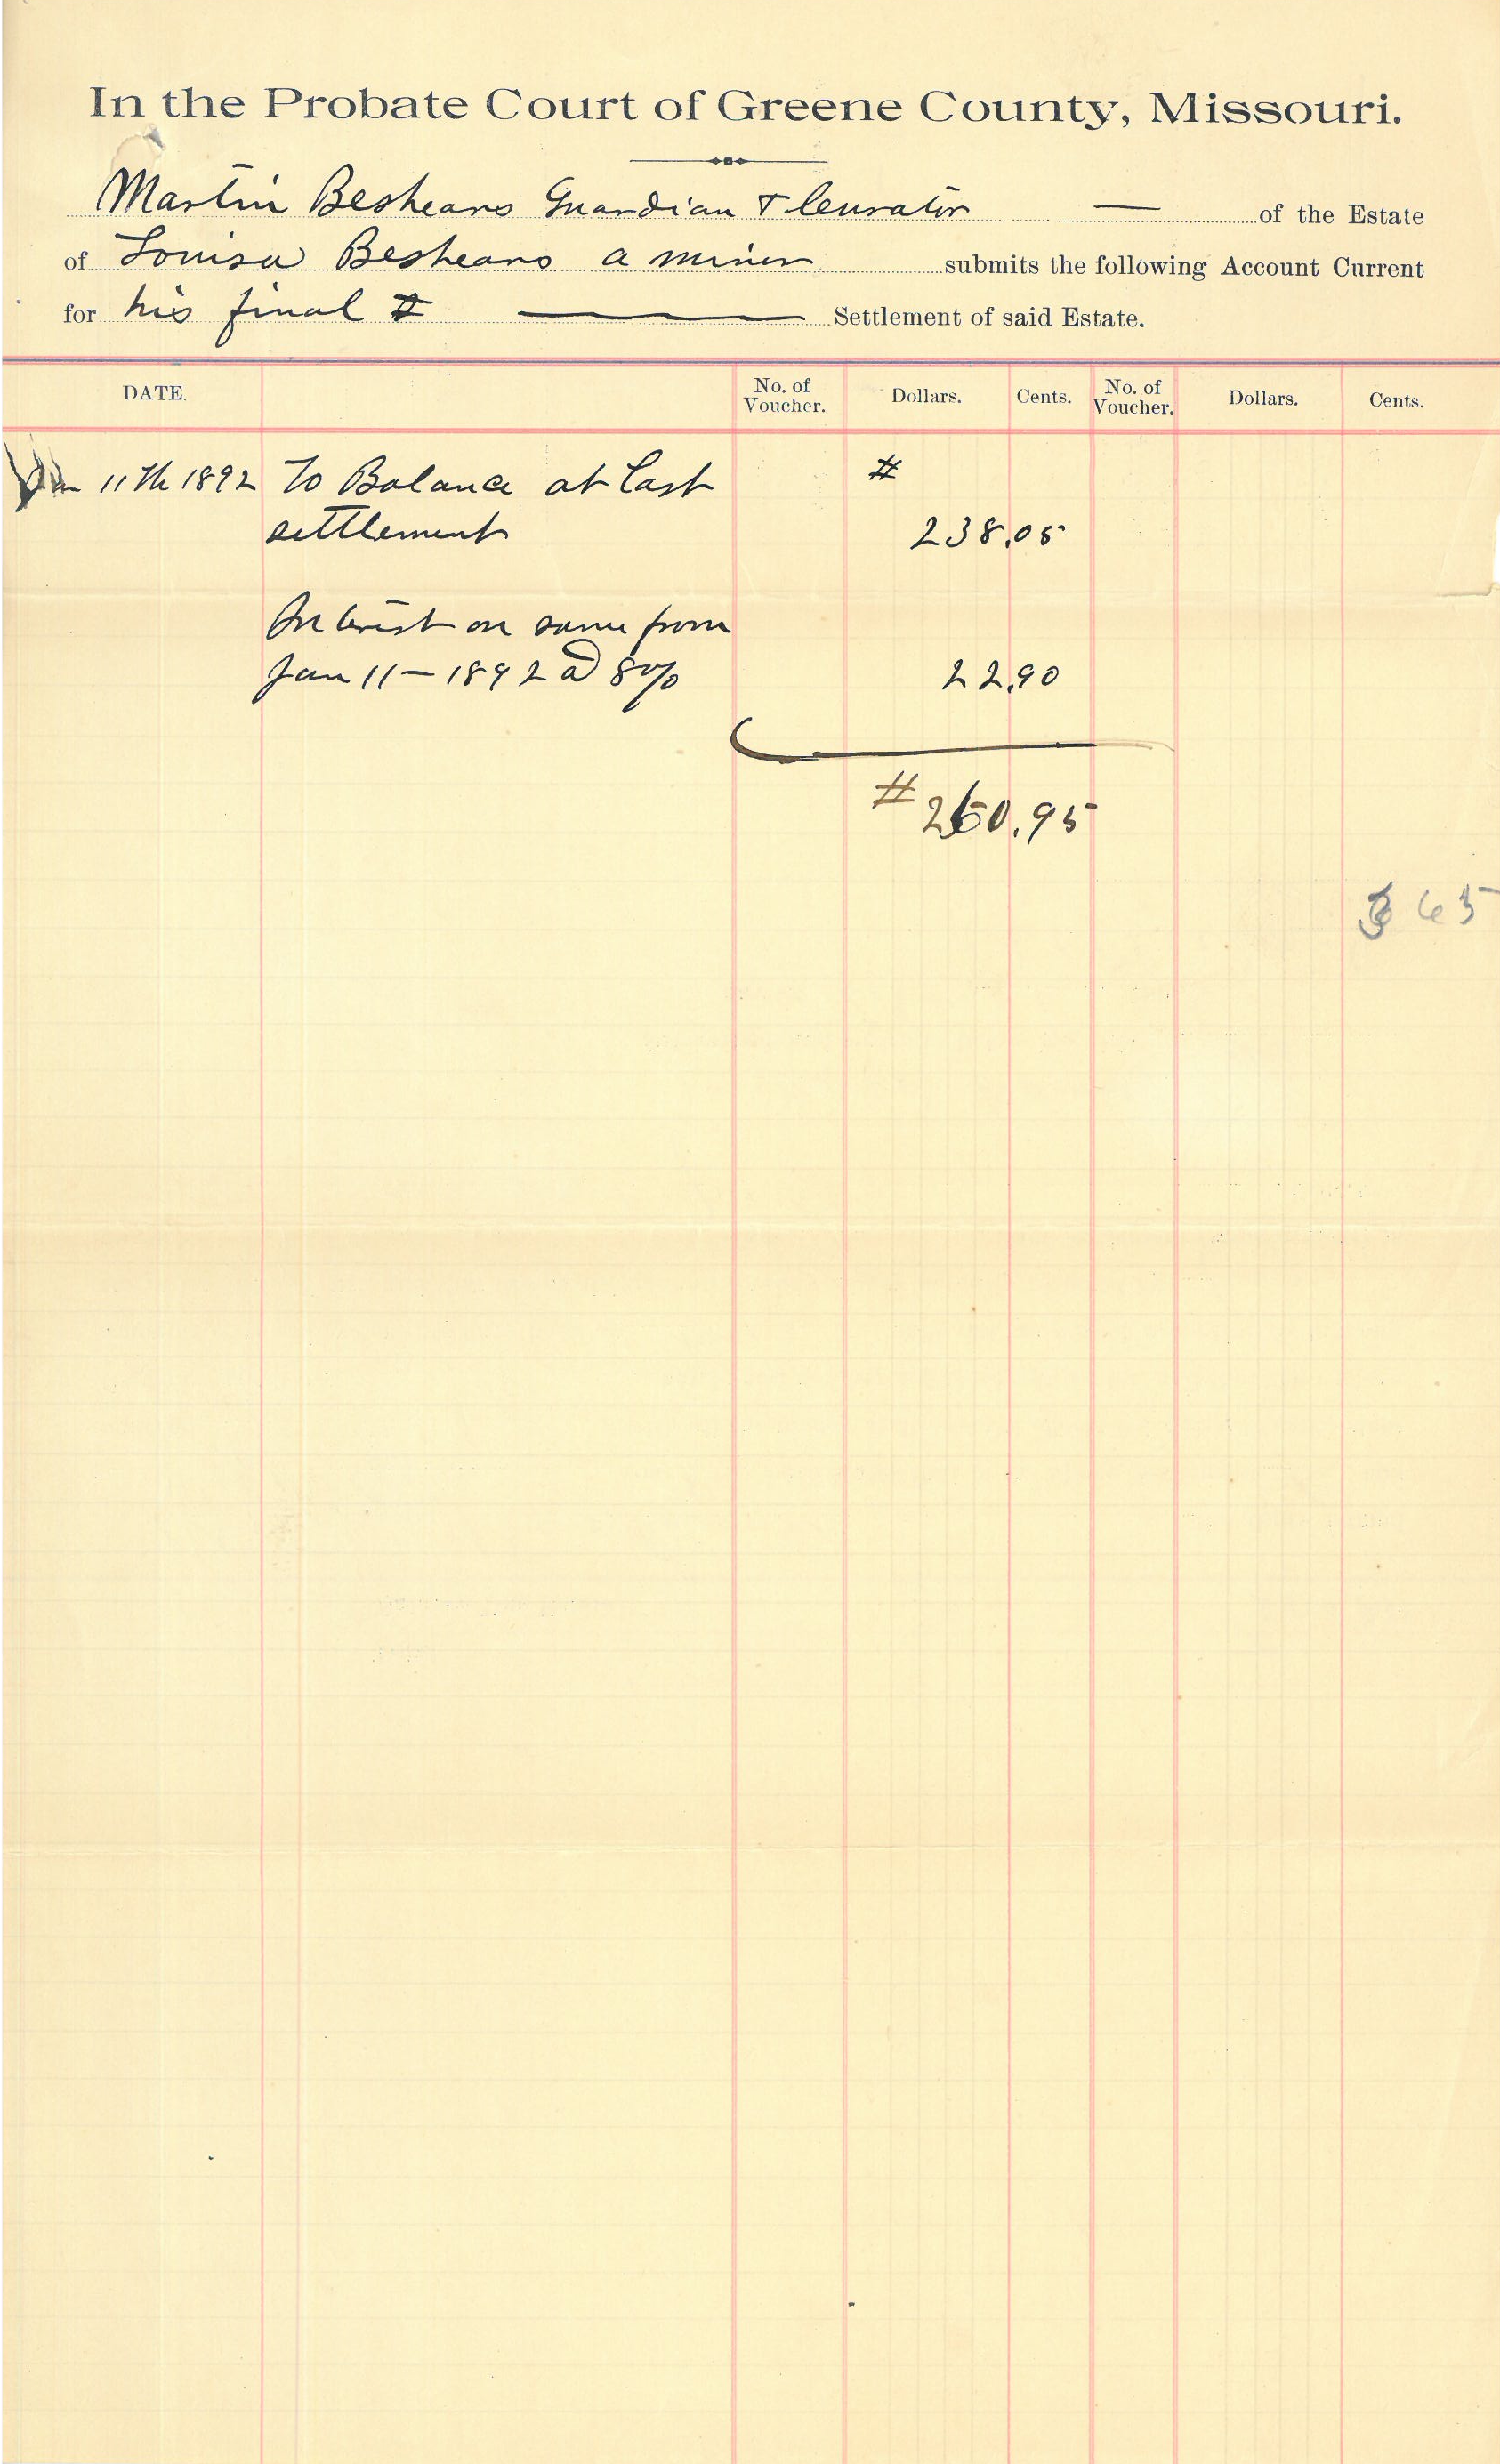 In the Probate Court of Greene County, Missouri.
Martin Beshears Guardian & Curator — of the Estate
of Louisa Beshears a minor submits the following Account Current
for his final # — Settlement of said Estate.
DATE. No. of Voucher. Dollars. Cents. No. of Voucher. Dollars. Cents.
Jan 11th 1892 To Balance at last #
settlement 238.05
Interest on same from
Jan 11 - 1892 @ 8% 22.90
# 260.95
365